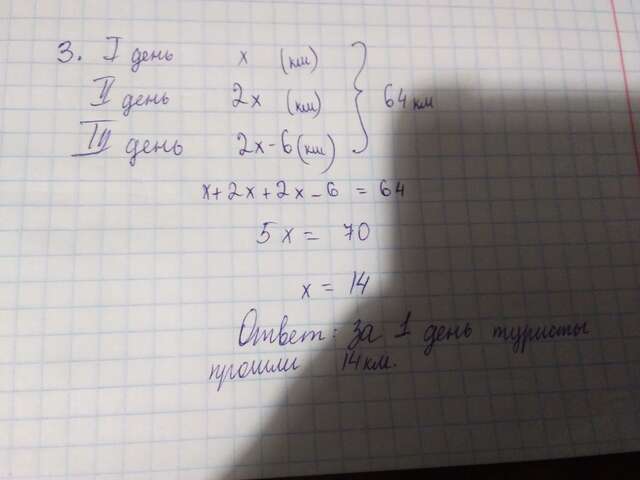 3. I день x (км)
II день 2x (км) } 64 км
III день 2x-6 (км)
x+2x+2x-6 = 64
5x = 70
x = 14
Ответ: за 1 день туристы
прошли 14 км.